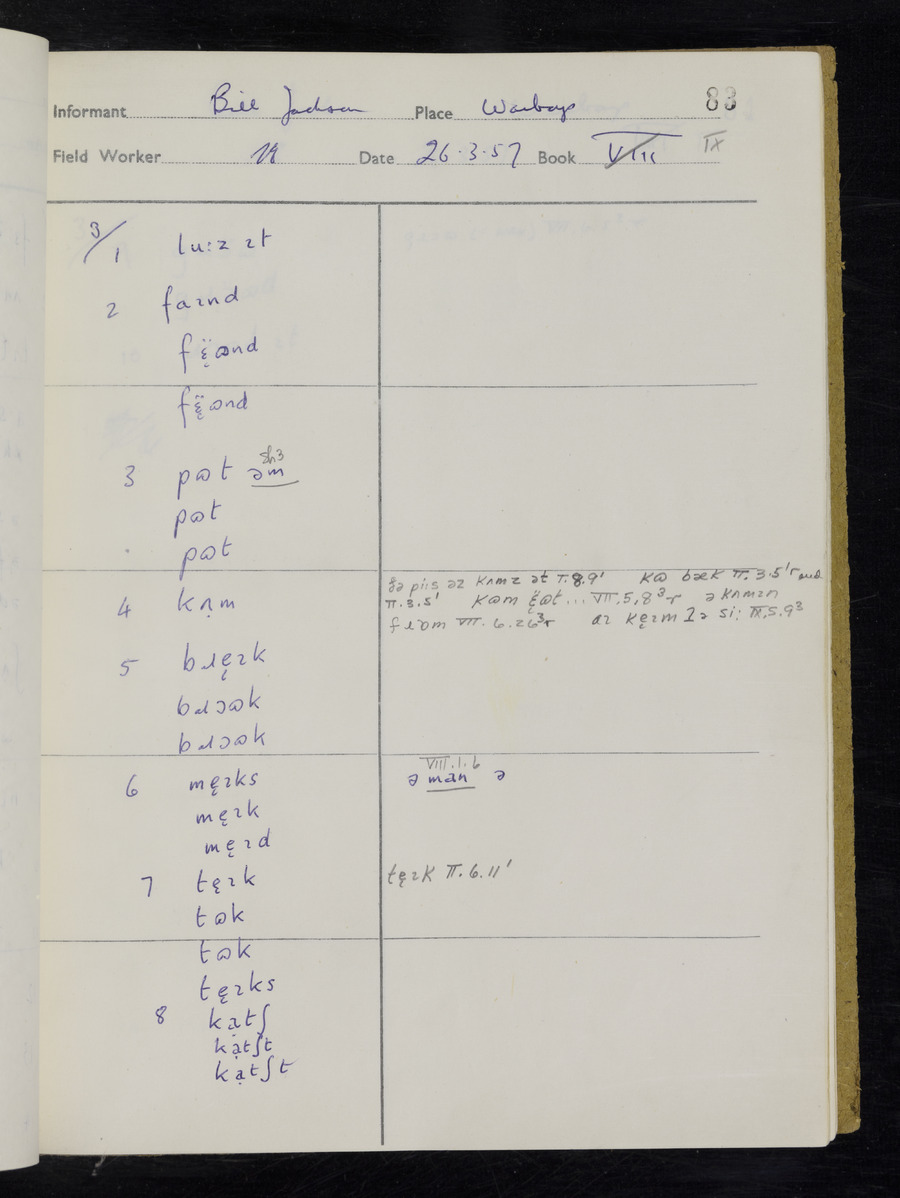 Informant Bill Jackson Place Warboys 83
Field Worker Date 26·3·57 Book VIII IX
3/1 luːz ɪt
2 faɪnd
fɛ̜̈ɷnd
fɛ̜̈ɷnd
3 pɷt əm sh3
pɷt
pɷt
4 kʌ̣m
ðə piːs əz kʌmz ət I.8.9' kɷ bæk II.3.5'r and
II.3.5' kɷm ɛ̜̈ɷt... VII.5,8³r ə kʌmɪn
fɹɒm VII.6.26³r aɪ kɛ̜ɪm tə siː IX.5.9³
5 bɹɛ̜ɪk
bɹɔɷk
bɹɔɷk
6 mɛ̜ɪks
mɛ̜ɪk
mɛ̜ɪd
VIII.1.6
ə man ə
7 tɛ̜ɪk
tɛ̜ɪk II.6.11'
tɷk
tɷk
tɛ̜ɪks
8 kạtʃ
kạtʃt
kạtʃt